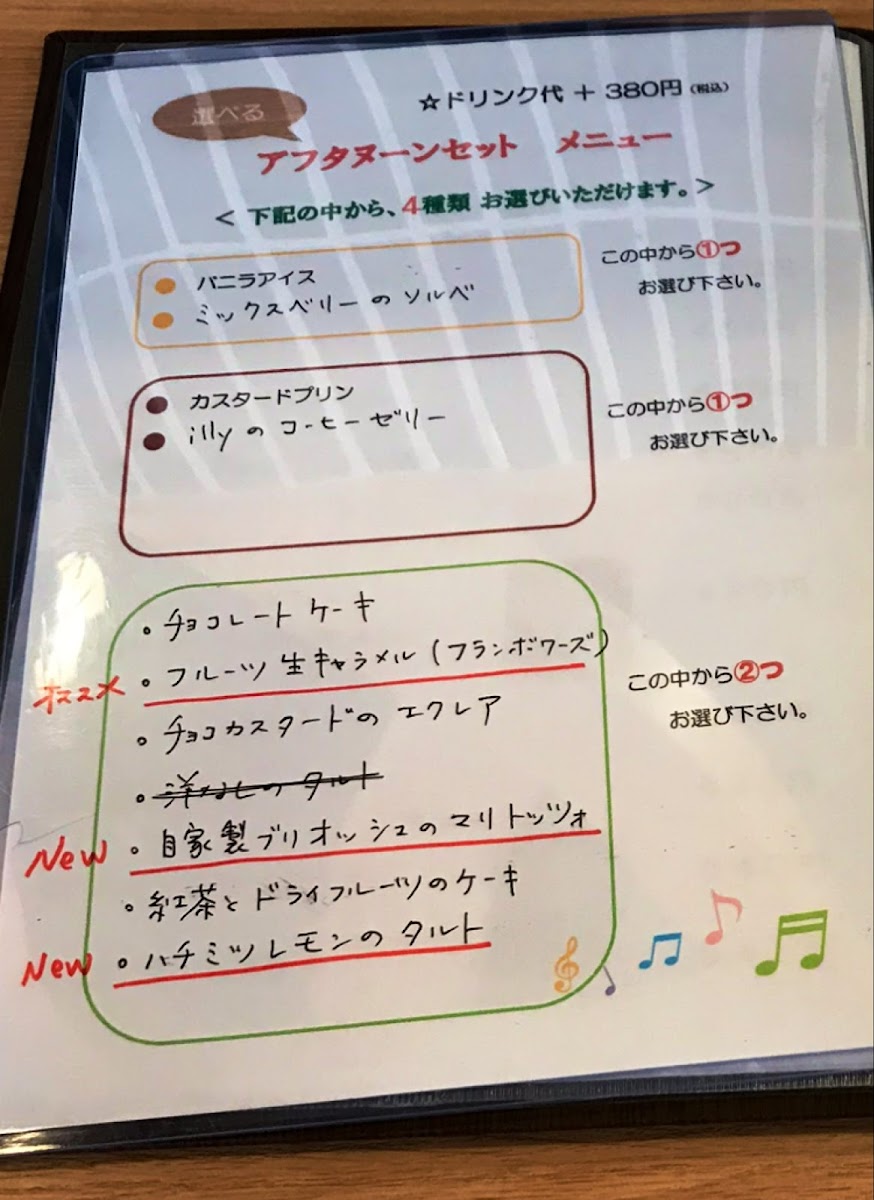 選べる
☆ドリンク代 + 380円(税込)
アフタヌーンセット メニュー
< 下記の中から、4種類 お選びいただけます。>
● バニラアイス
● ミックスベリーのソルベ
この中から①つ
お選び下さい。
● カスタードプリン
● illyのコーヒーゼリー
この中から①つ
お選び下さい。
・チョコレートケーキ
オススメ ・フルーツ生キャラメル(フランボワーズ)
・チョコカスタードのエクレア
この中から②つ
お選び下さい。
・洋なしのタルト
New ・自家製ブリオッシュのマリトッツォ
・紅茶とドライフルーツのケーキ
New ・ハチミツレモンのタルト